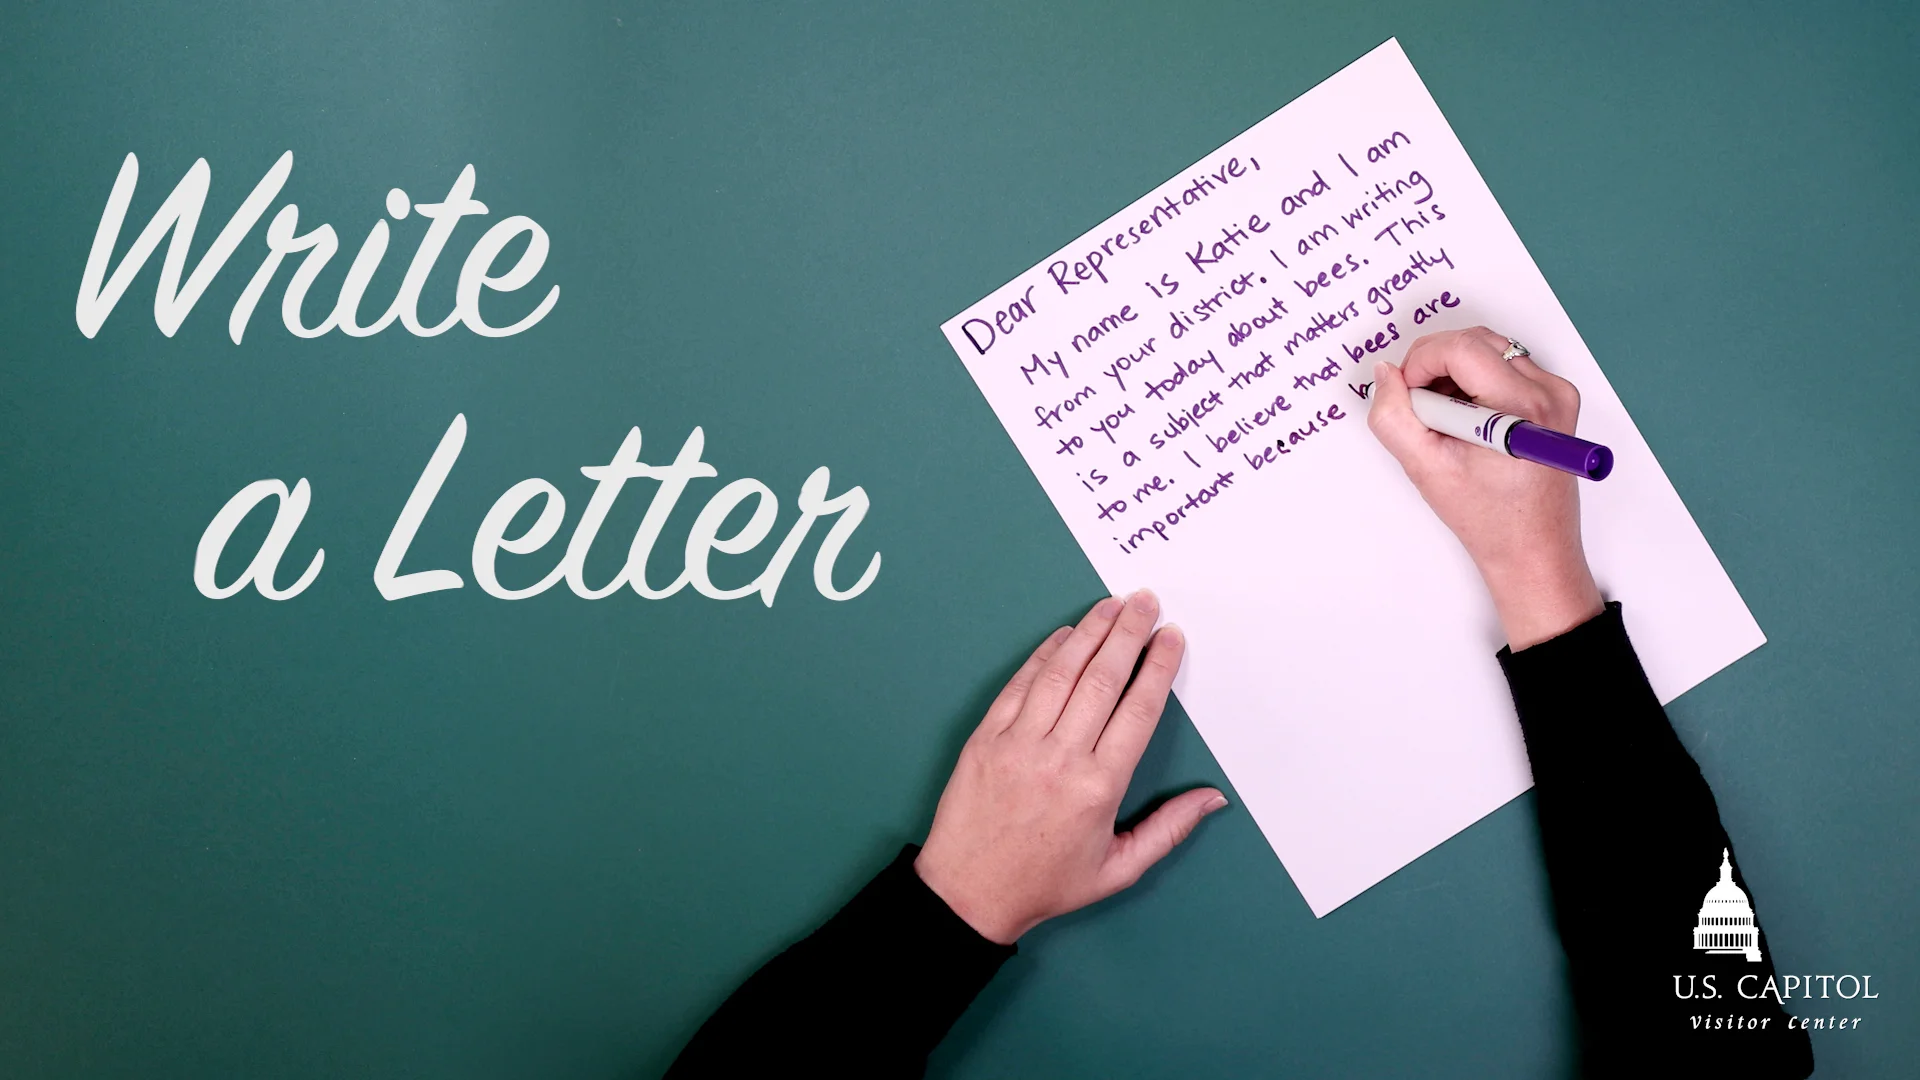 Write
a Letter
Dear Representative,
My name is Katie and I am
from your district. I am writing
to you today about bees. This
is a subject that matters greatly
to me. I believe that bees are
important because
U.S. CAPITOL
Visitor Center